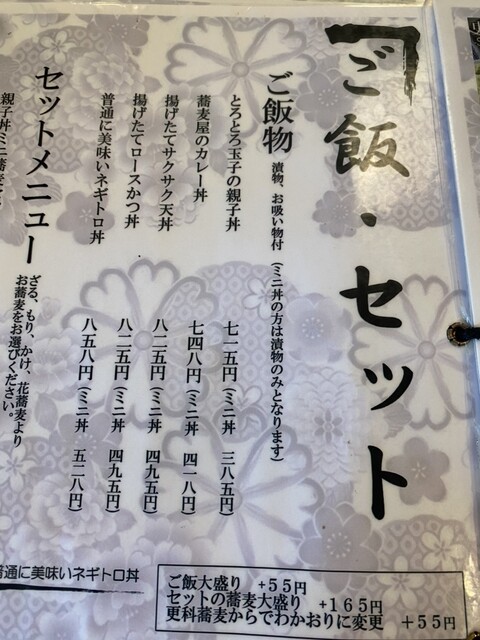 ご飯・セット
ご飯物 漬物、お吸い物付 (ミニ丼の方は漬物のみとなります)
とろとろ玉子の親子丼 七一五円 (ミニ丼 三八五円)
蕎麦屋のカレー丼 七四八円 (ミニ丼 四一八円)
揚げたてサクサク天丼 八二五円 (ミニ丼 四九五円)
揚げたてロースかつ丼 八二五円 (ミニ丼 四九五円)
普通に美味いネギトロ丼 八五八円 (ミニ丼 五二八円)
セットメニュー ざる、もり、かけ、花蕎麦より
お蕎麦をお選びください。
親子丼ミニ蕎麦
普通に美味いネギトロ丼
ご飯大盛り +55円
セットの蕎麦大盛り +165円
更科蕎麦からでわかおりに変更 +55円